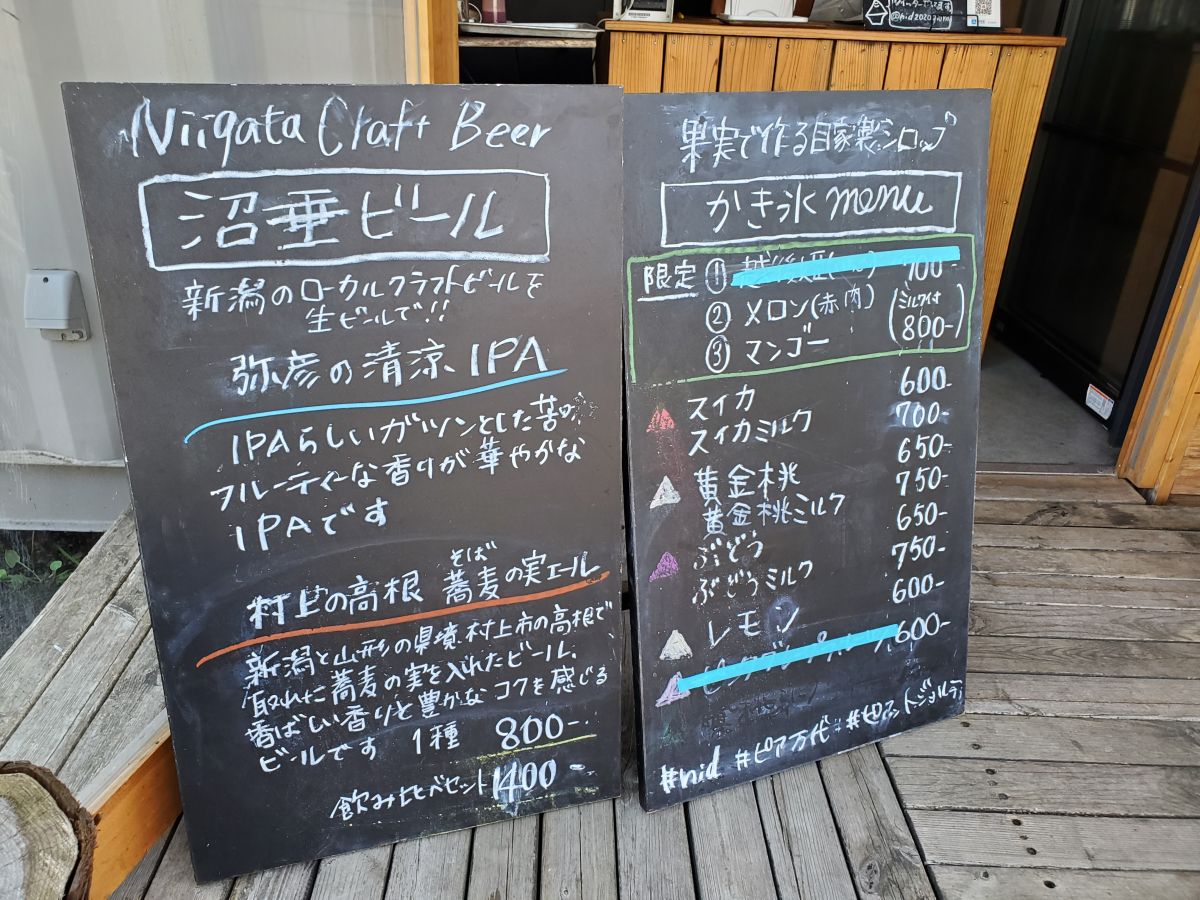 Niigata Craft Beer
沼垂ビール
新潟のローカルクラフトビールを
生ビールで!!
弥彦の清涼IPA
IPAらしいガツンとした苦み
フルーティーな香りが華やかな
IPAです
そば
村上の高根 蕎麦の実エール
新潟と山形の県境、村上市の高根で
取れた蕎麦の実を入れたビール、
香ばしい香りと豊かなコクを感じる
ビールです 1種 800-
飲み比べセット1400-
果実で作る自家製シロップ
かき氷menu
限定 ① 700-
② メロン(赤肉) (ミルク付
③ マンゴー 800-)
スイカ 600-
スイカミルク 700-
黄金桃 650-
黄金桃ミルク 750-
ぶどう 650-
ぶどうミルク 750-
レモン 600-
600-
#nid #ピア万代
@nid2020